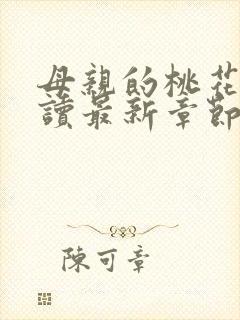 母親的桃花
讀最新章節
陳可章